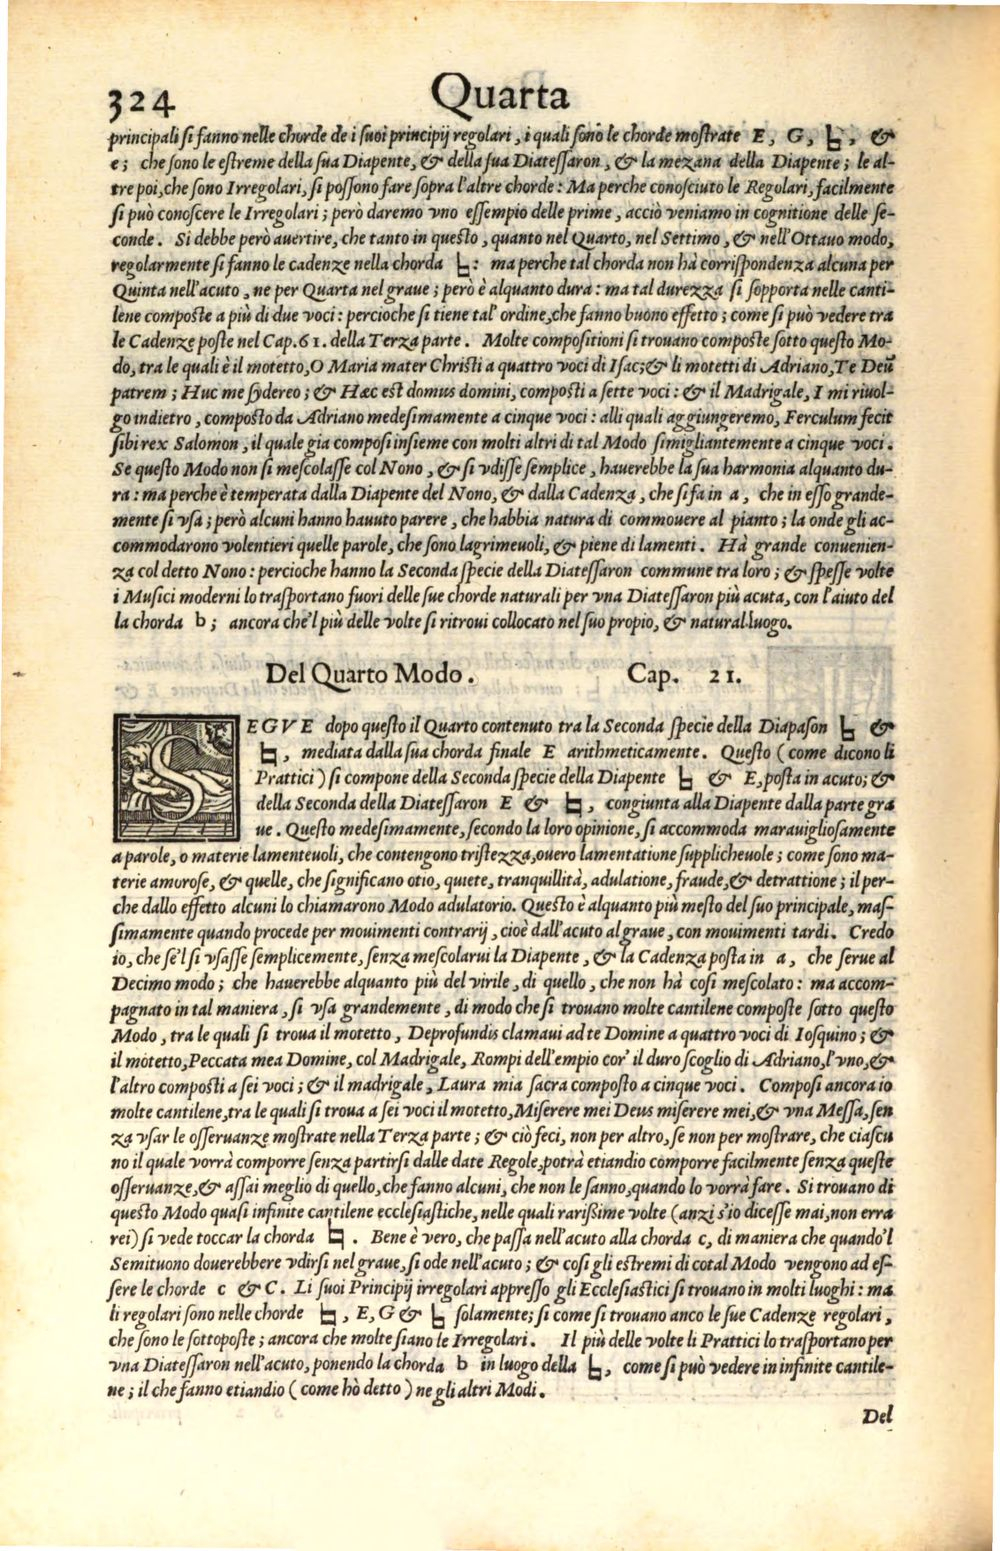 324 Quarta
principali ſi fanno nelle chorde de i ſuoi principij regolari, i quali ſono le chorde moſtrate E, G, ♮, &
e; che ſono le eſtreme della ſua Diapente, & della ſua Diateſſaron, & la mezana della Diapente; le al-
tre poi, che ſono Irregolari, ſi poſſono fare ſopra l'altre chorde: Ma perche conoſciuto le Regolari, facilmente
ſi può conoſcere le Irregolari; però daremo vno eſſempio delle prime, acciò veniamo in cognitione delle ſe-
conde. Si debbe però auertire, che tanto in queſto, quanto nel Quarto, nel Settimo, & nell'Ottauo modo,
regolarmente ſi fanno le cadenze nella chorda ♮: ma perche tal chorda non hà corriſpondenza alcuna per
Quinta nell'acuto, ne per Quarta nel graue; però è alquanto dura: ma tal durezza ſi ſopporta nelle canti-
lene compoſte a più di due voci: percioche ſi tiene tal' ordine, che fanno buono effetto; come ſi può vedere tra
le Cadenze poſte nel Cap. 61. della Terza parte. Molte compoſitioni ſi trouano compoſte ſotto queſto Mo-
do, tra le quali è il motetto, O Maria mater Chriſti a quattro voci di Iſac; & li motetti di Adriano, Te Deũ
patrem; Huc me ſydereo; & Hæc eſt domus domini, compoſti a ſette voci: & il Madrigale, I mi riuol-
go indietro, compoſto da Adriano medeſimamente a cinque voci: alli quali aggiungeremo, Ferculum fecit
ſibi rex Salomon, il quale gia compoſi inſieme con molti altri di tal Modo ſimigliantemente a cinque voci.
Se queſto Modo non ſi meſcolaſſe col Nono, & ſi vdiſſe ſemplice, hauerebbe la ſua harmonia alquanto du-
ra: ma perche è temperata dalla Diapente del Nono, & dalla Cadenza, che ſi fa in a, che in eſſo grande-
mente ſi vſa; però alcuni hanno hauuto parere, che habbia natura di commouere al pianto; la onde gli ac-
commodarono volentieri quelle parole, che ſono lagrimeuoli, & piene di lamenti. Hà grande conuenien-
za col detto Nono: percioche hanno la Seconda ſpecie della Diateſſaron commune tra loro; & ſpeſſe volte
i Muſici moderni lo traſportano fuori delle ſue chorde naturali per vna Diateſſaron più acuta, con l'aiuto del
la chorda b; ancora che'l più delle volte ſi ritroui collocato nel ſuo propio, & natural luogo.
Del Quarto Modo. Cap. 21.
SEGVE dopo queſto il Quarto contenuto tra la Seconda ſpecie della Diapaſon ♮ &
♮, mediata dalla ſua chorda finale E arithmeticamente. Queſto (come dicono li
Prattici) ſi compone della Seconda ſpecie della Diapente ♮ & E, poſta in acuto; &
della Seconda della Diateſſaron E & ♮, congiunta alla Diapente dalla parte gra
ue. Queſto medeſimamente, ſecondo la loro opinione, ſi accommoda marauiglioſamente
a parole, o materie lamenteuoli, che contengono triſtezza, ouero lamentatione ſupplicheuole; come ſono ma-
terie amoroſe, & quelle, che ſignificano otio, quiete, tranquillità, adulatione, fraude, & detrattione; il per-
che dallo effetto alcuni lo chiamarono Modo adulatorio. Queſto è alquanto più meſto del ſuo principale, maſ-
ſimamente quando procede per mouimenti contrarij, cioè dall'acuto al graue, con mouimenti tardi. Credo
io, che ſe'l ſi vſaſſe ſemplicemente, ſenza meſcolarui la Diapente, & la Cadenza poſta in a, che ſerue al
Decimo modo; che hauerebbe alquanto più del virile, di quello, che non hà coſi meſcolato: ma accom-
pagnato in tal maniera, ſi vſa grandemente, di modo che ſi trouano molte cantilene compoſte ſotto queſto
Modo, tra le quali ſi troua il motetto, Deprofundis clamaui ad te Domine a quattro voci di Ioſquino; &
il motetto, Peccata mea Domine, col Madrigale, Rompi dell'empio cor' il duro ſcoglio di Adriano, l'vno, &
l'altro compoſti a ſei voci; & il madrigale, Laura mia ſacra compoſto a cinque voci. Compoſi ancora io
molte cantilene, tra le quali ſi troua a ſei voci il motetto, Miſerere mei Deus miſerere mei, & vna Meſſa, ſen
za vſar le oſſeruanze moſtrate nella Terza parte; & ciò feci, non per altro, ſe non per moſtrare, che ciaſcu
no il quale vorrà comporre ſenza partirſi dalle date Regole, potrà etiandio comporre facilmente ſenza queſte
oſſeruanze, & aſſai meglio di quello, che fanno alcuni, che non le ſanno, quando lo vorrà fare. Si trouano di
queſto Modo quaſi infinite cantilene eccleſiaſtiche, nelle quali rariſſime volte (anzi s'io diceſſe mai, non erra
rei) ſi vede toccar la chorda ♮. Bene è vero, che paſſa nell'acuto alla chorda c, di maniera che quando'l
Semituono douerebbere vdirſi nel graue, ſi ode nell'acuto; & coſi gli eſtremi di cotal Modo vengono ad eſ-
ſere le chorde c & C. Li ſuoi Principij irregolari appreſſo gli Eccleſiaſtici ſi trouano in molti luoghi: ma
li regolari ſono nelle chorde ♮, E, G & ♮ ſolamente; ſi come ſi trouano anco le ſue Cadenze regolari,
che ſono le ſottopoſte; ancora che molte ſiano le Irregolari. Il più delle volte li Prattici lo traſportano per
vna Diateſſaron nell'acuto, ponendo la chorda b in luogo della ♮, come ſi può vedere in infinite cantile-
ne; il che fanno etiandio (come hò detto) ne gli altri Modi.
Del